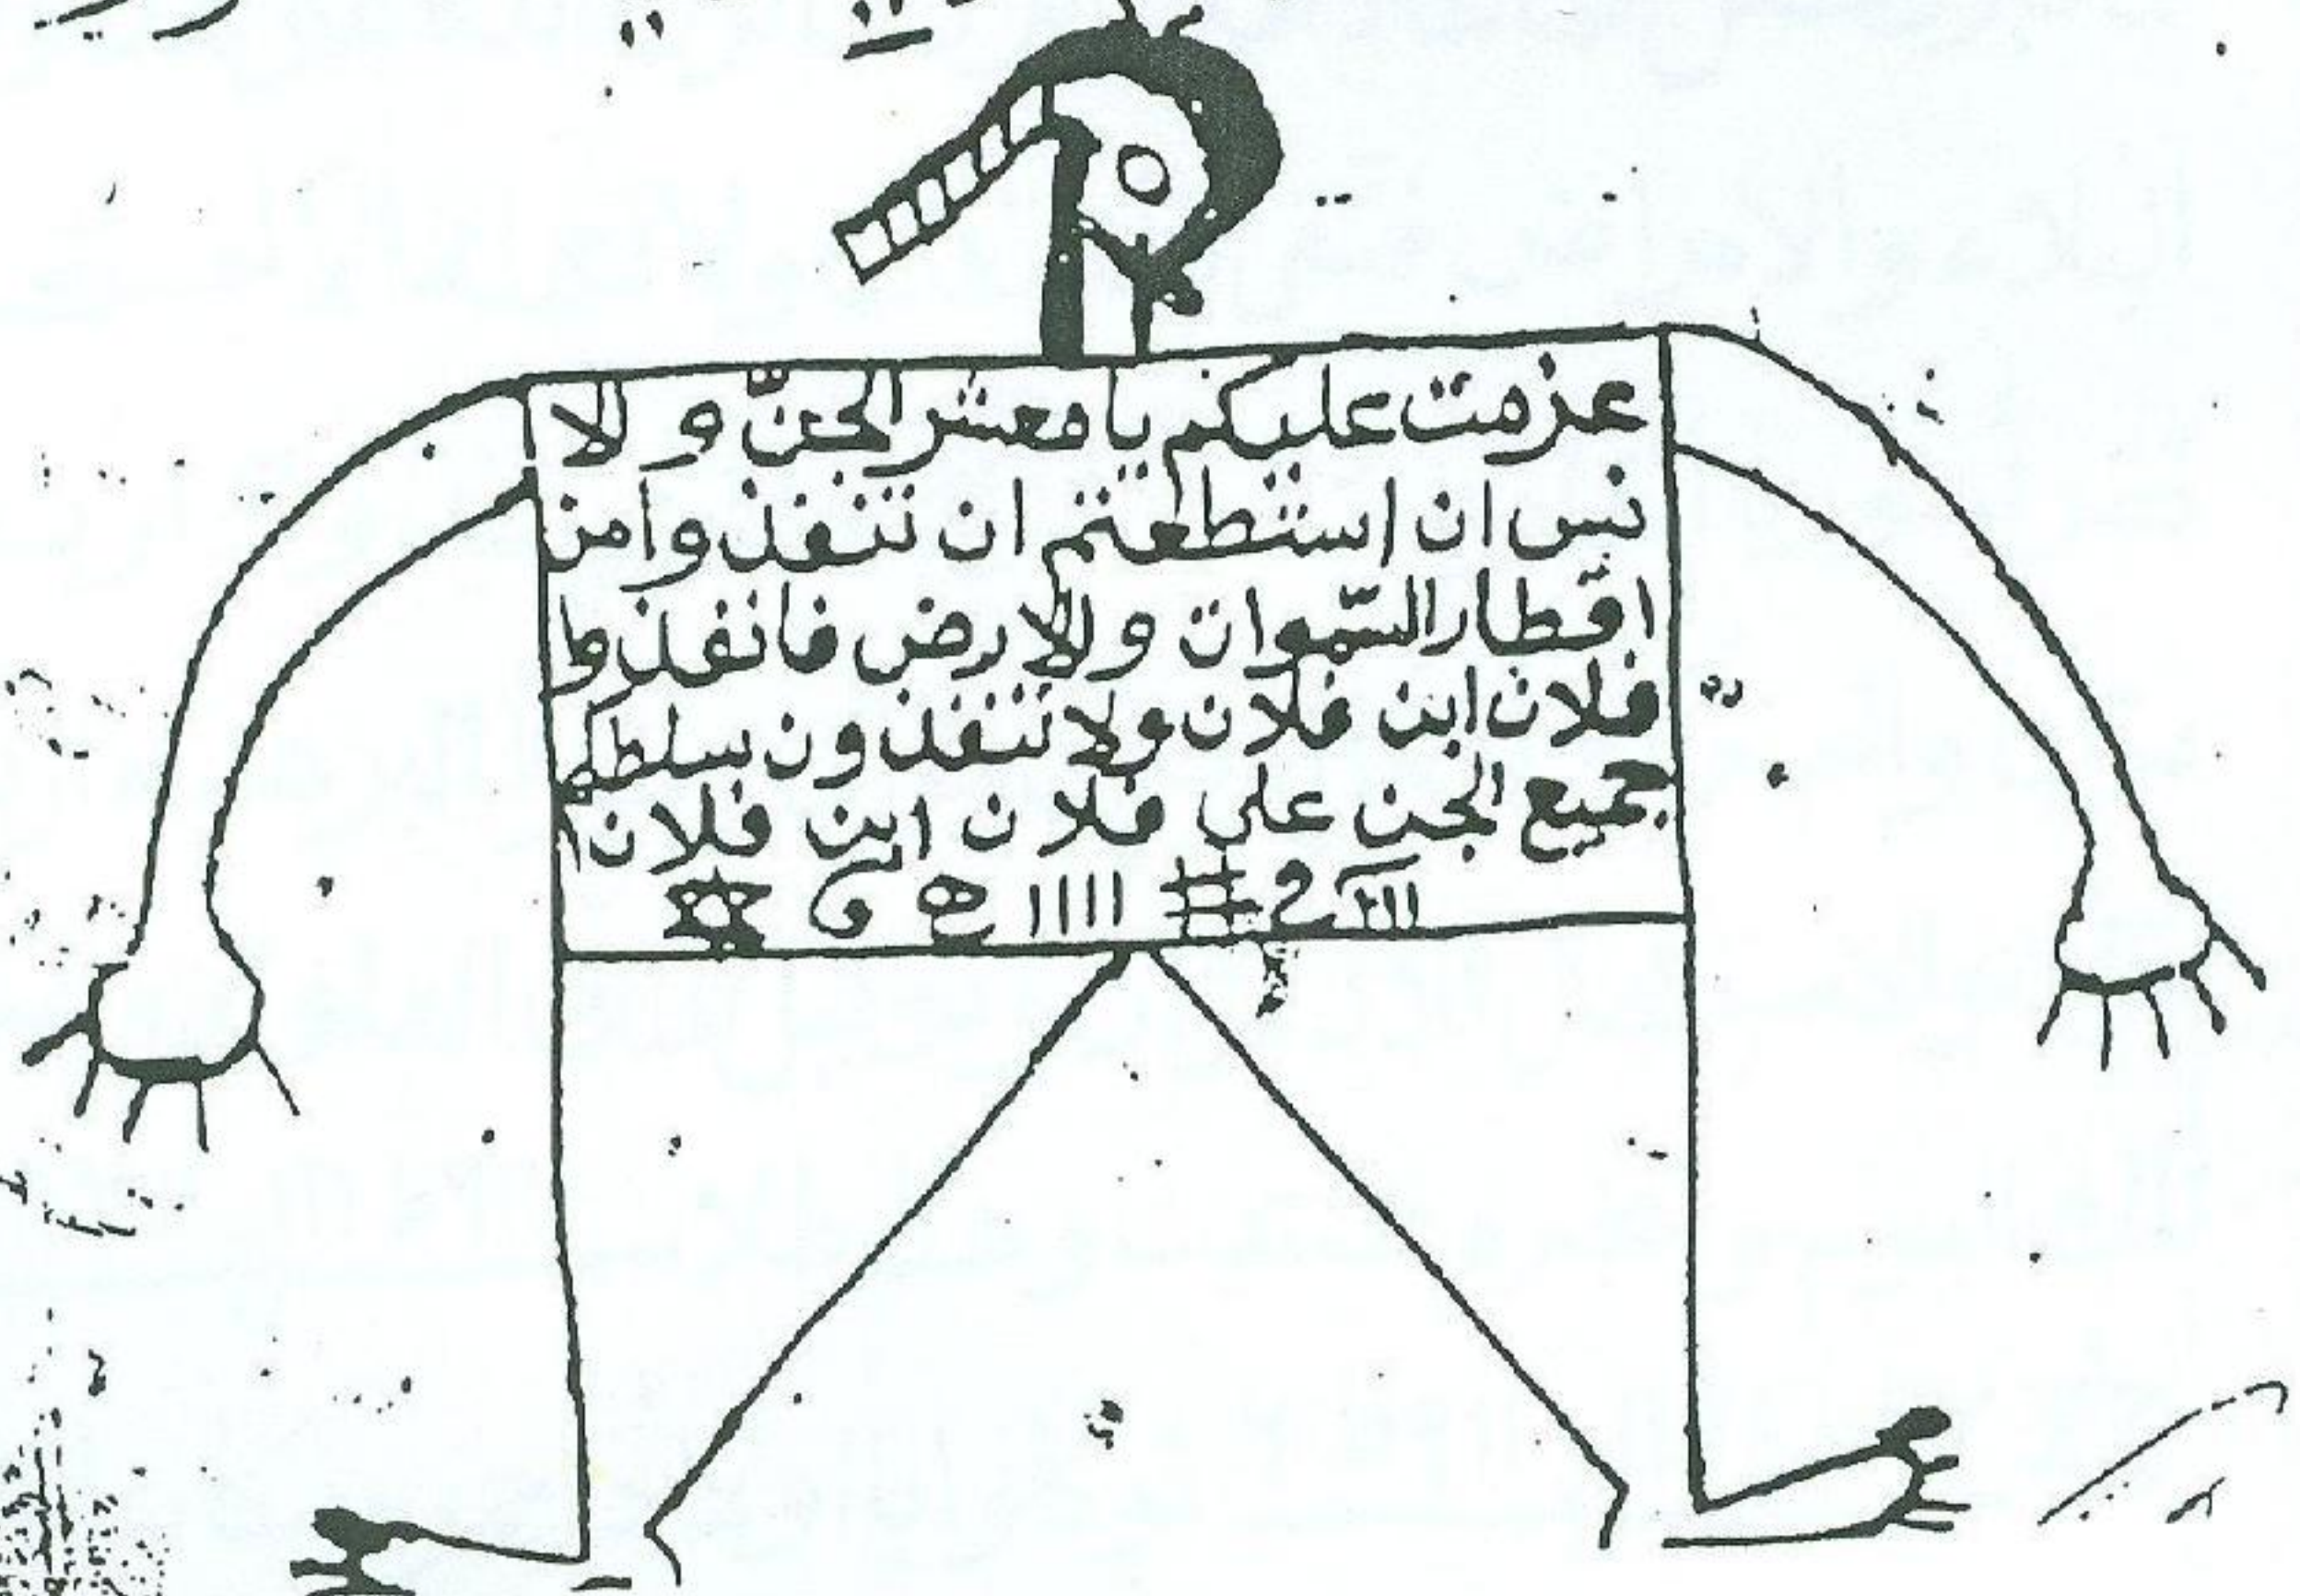 عزمت عليكم يا معشر الجنّ و الا
نس ان استطعتم ان تنفذوا من
اقطار السّموات و الارض فانفذوا
فلان ابن فلان ولا تنفذون سلطكم
جميع الجن على فلان ابن فلان